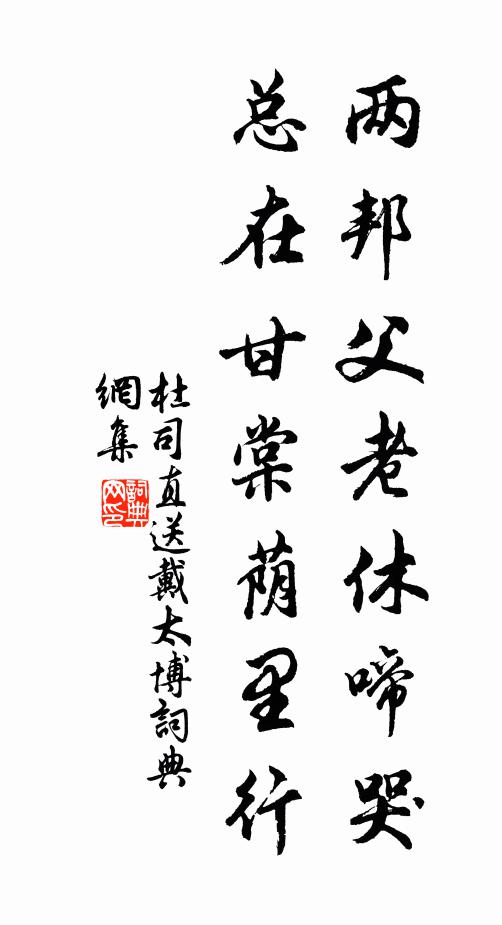 两邦父老休啼哭
总在甘棠荫里行
杜司直送戴太博詞典
網集
詞典
网印